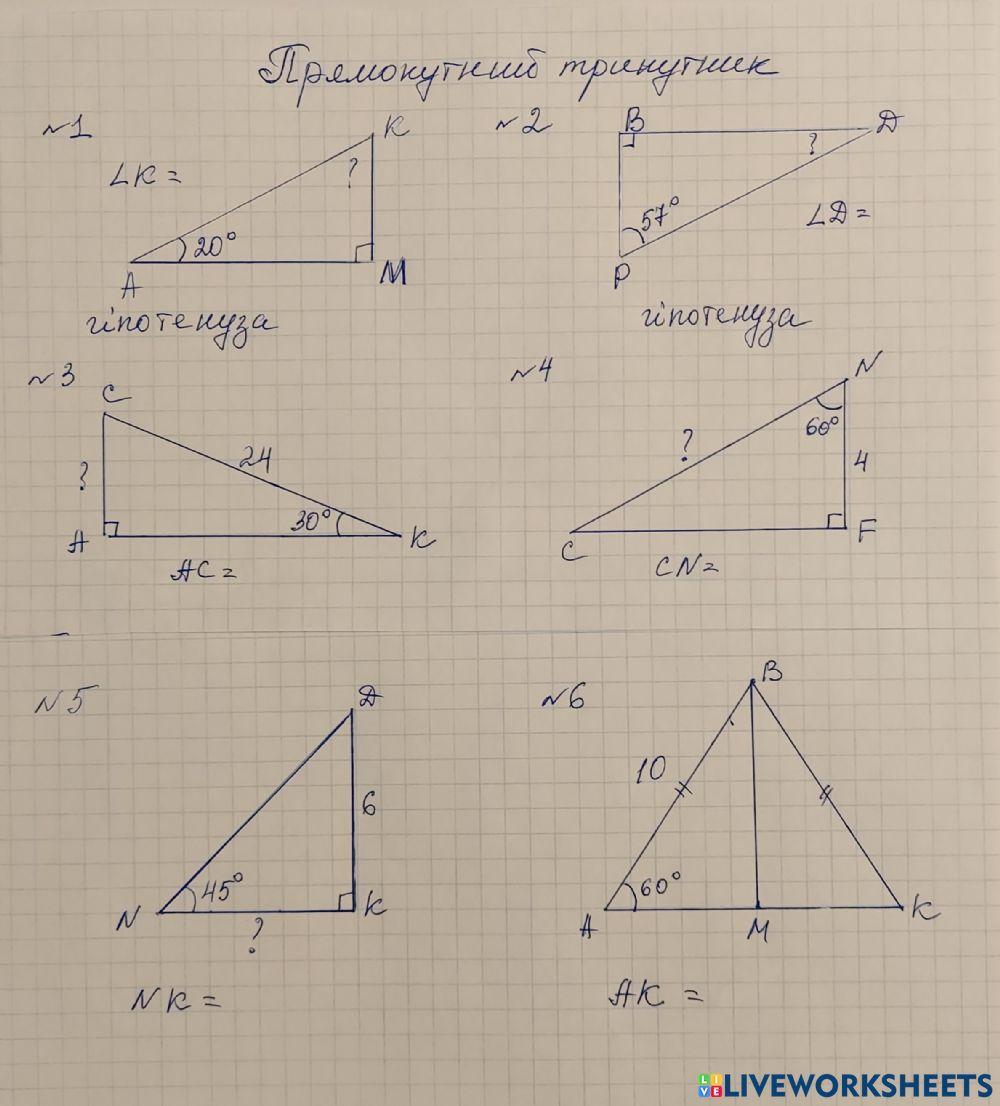 Прямокутний трикутник
№1
К
∠К =
?
20°
А
М
гіпотенуза
№2
В
Д
?
57°
∠Д =
Р
гіпотенуза
№3
С
?
24
30°
А
К
АС =
№4
N
60°
?
4
С
F
CN =
№5
Д
6
45°
N
К
?
NК =
№6
В
10
60°
А
М
К
АК =
LIVE LIVEWORKSHEETS